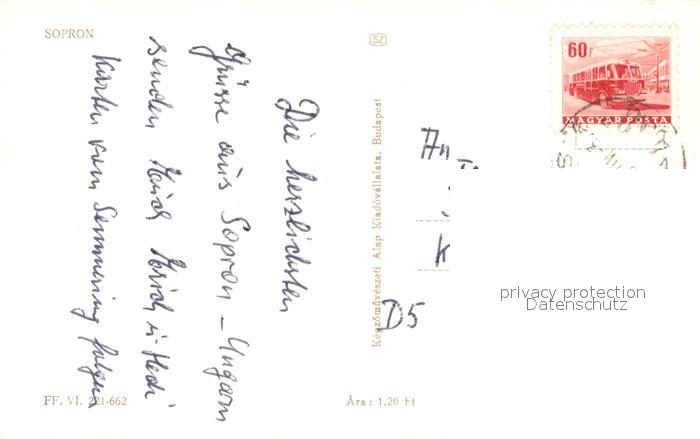 SOPRON
SZ
Die herzlichsten
Grüsse aus Sopron – Ungarn
senden Euch Erich u. Hedi
Karten vom Semmering folgen
FF. VI. 221-662
Képzőművészeti Alap Kiadóvállalata, Budapest
Ára: 1,20 Ft
60f
MAGYAR POSTA
An
K
D5
privacy protection
Datenschutz